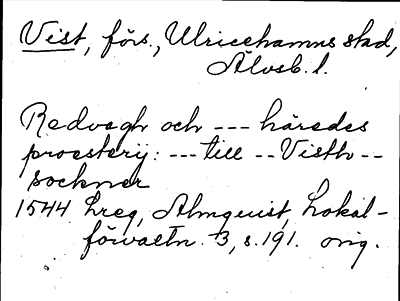 Vist, förs., Ulricehamns stad,
Älvsb. l.
Redvegh och --- häredes
prosterij: --- till -- Visth --
sockner
1544 Lreg, Almquist, Lokal-
förvaltn. 3, s. 191. orig.